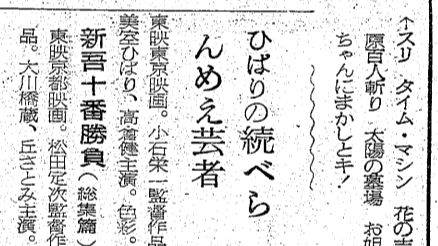 ↑スリ タイム・マシン 花の吉
原百人斬り 太陽の墓場 お姐
ちゃんにまかしとキ!
ひばりの続べら
んめえ芸者
東映東京映画。小石栄一監督作品
美空ひばり、高倉健主演。色彩。
新吾十番勝負(総集篇)
東映京都映画。松田定次監督作
品。大川橋蔵、丘さとみ主演。